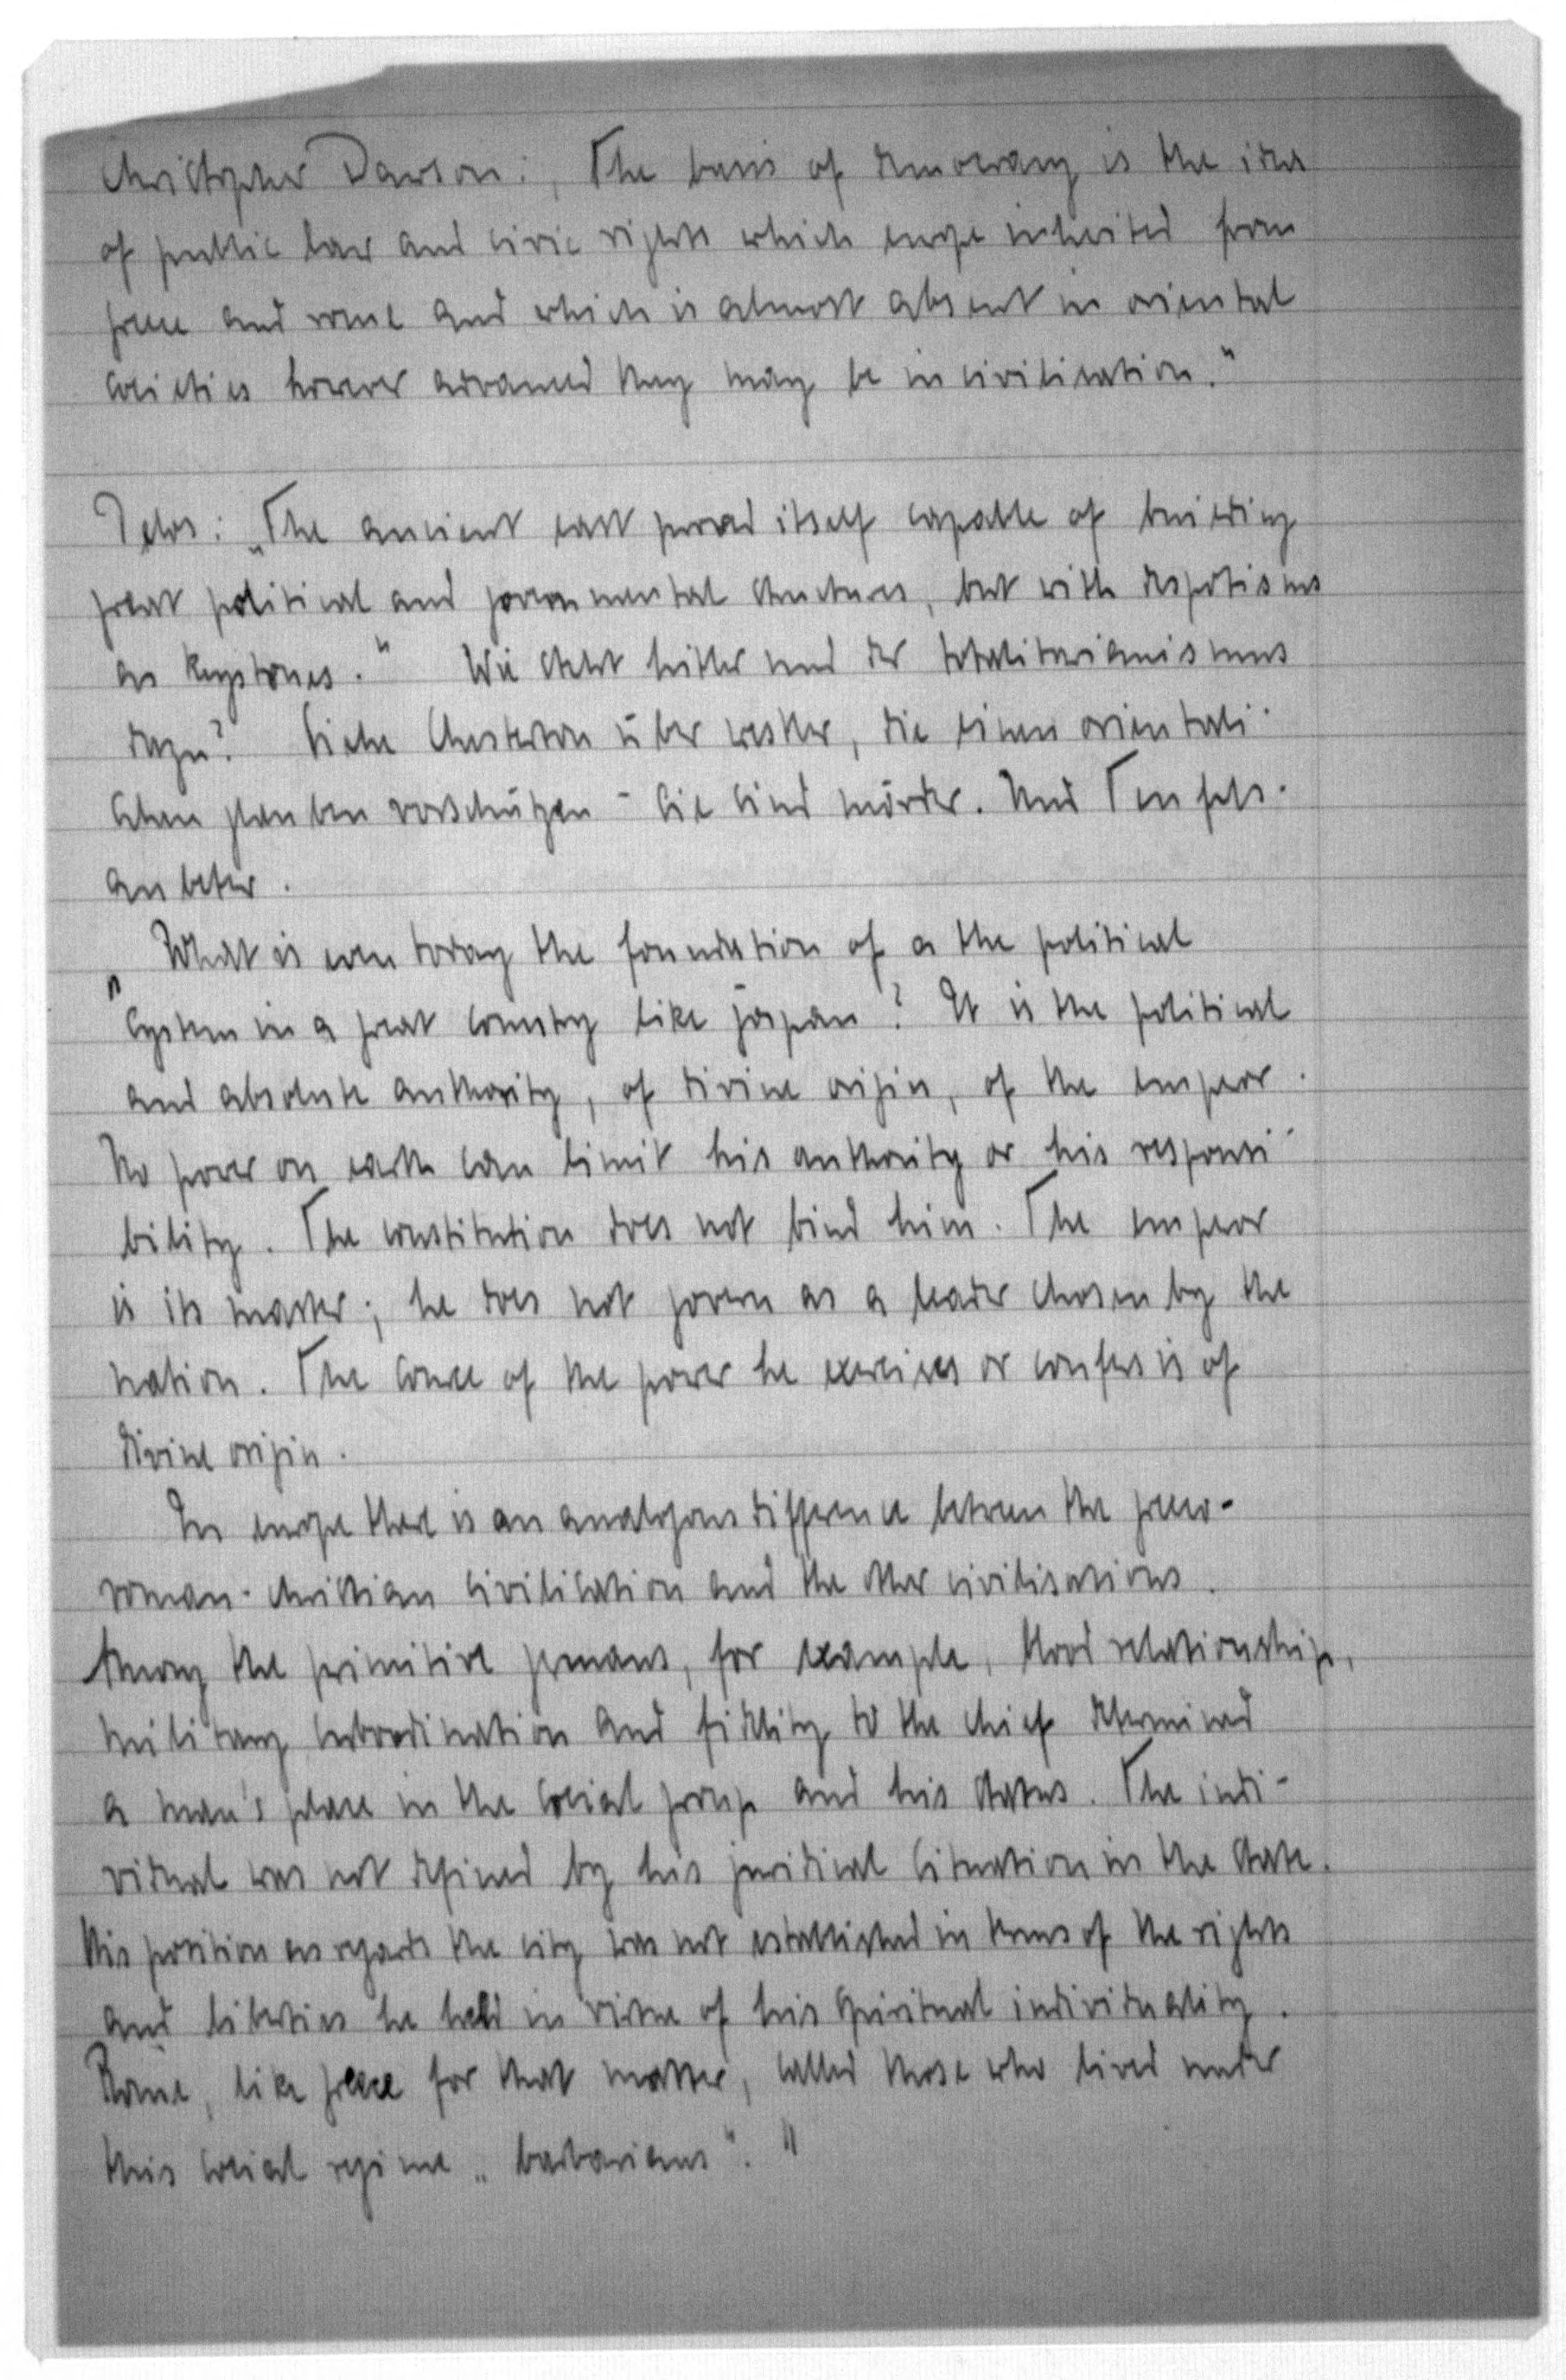 Christopher Dawson: „The basis of democracy is the idea
of public law and civic rights which europe inherited from
greece and rome and which is almost absent in oriental
societies however advanced they may be in civilisation."
Telos: „The ancient east proved itself capable of building
great political and governmental structures, but with despotisms
as keystones." Wie steht hitler und der totalitarianismus
dazu? Siehe Chesterton über westler, die einen orientali-
schen glauben vorschützen - sie sind mörder. Und Teufels-
anbeter.
„What is even today the foundation of a the political
system in a great country like japan? It is the political
and absolute authority, of divine origin, of the emperor.
No power on earth can limit his authority or his responsi-
bility. The constitution does not bind him. The emperor
is its master; he does not govern as a leader chosen by the
nation. The source of the power he exercises or confers is of
divine origin.
In europe there is an analogous difference between the greco-
roman-christian civilisation and the other civilisations.
Among the primitive germans, for example, blood relationship,
military subordination and fidelity to the chief determined
a man's place in the social group and his status. The indi-
vidual was not defined by his juridical situation in the state.
His position as regards the city was not established in terms of the rights
and liberties he held in virtue of his spiritual individuality.
Rome, like greece for that matter, called those who lived under
this social regime „barbarians"."